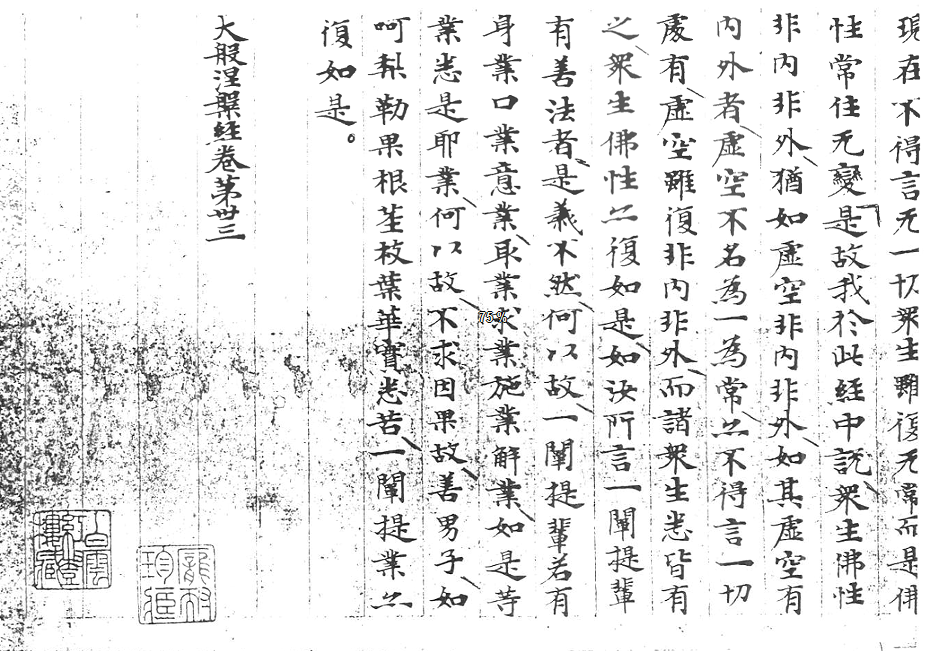 現在不得言无一切衆生雖復无常而是佛
性常住无變是故我於此經中説衆生佛性
非内非外猶如虛空非内非外如其虛空有
内外者虛空不名為一為常亦不得言一切
處有虛空雖復非内非外而諸衆生悉皆有
之衆生佛性亦復如是如汝所言一闡提輩
有善法者是義不然何以故一闡提輩若有
身業口業意業取業求業施業解業如是等
業悉是耶業何以故不求因果故善男子如
呵梨勒果根莖枝葉華實悉苦一闡提業亦
復如是。
大般涅槃經卷第卅三
75%